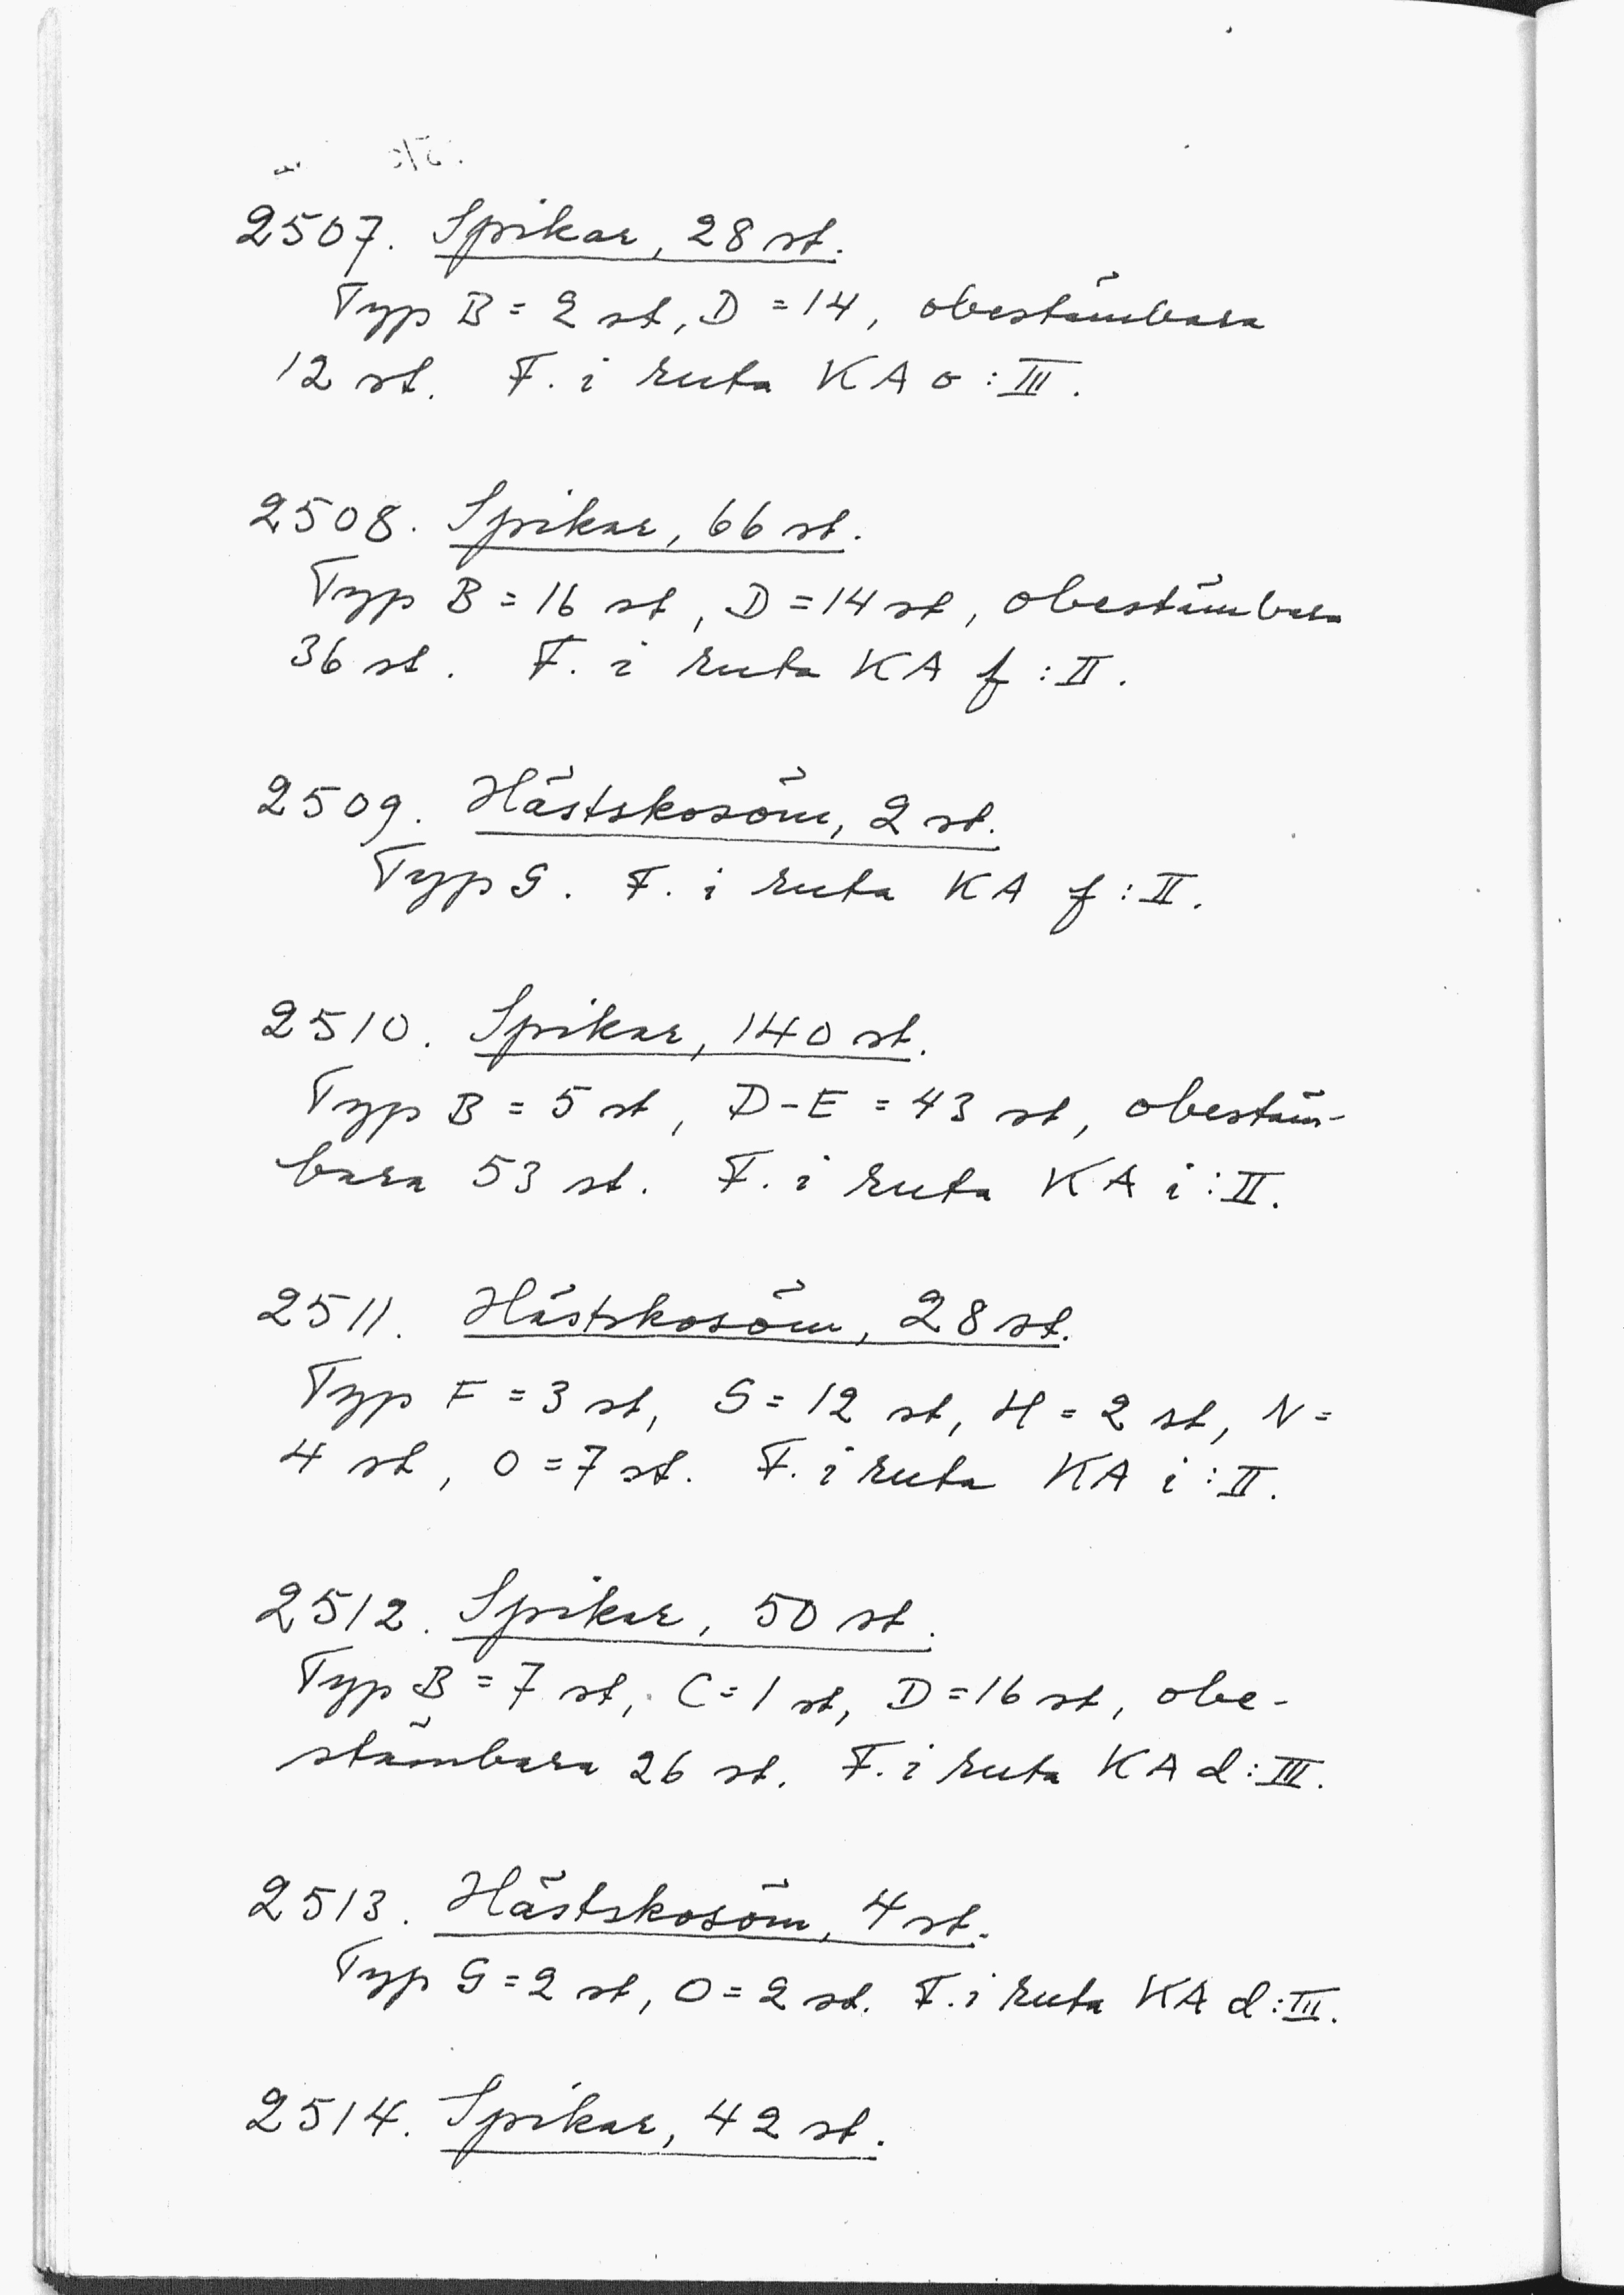 2507. Spikar, 28 st.
Typ B = 2 st, D = 14, obestämbara
12 st. F. i ruta KA o : III.
2508. Spikar, 66 st.
Typ B = 16 st, D = 14 st, obestämbara
36 st. F. i ruta KA f : II.
2509. Hästskosöm, 2 st.
Typ G. F. i ruta KA f : II.
2510. Spikar, 140 st.
Typ B = 5 st, D-E = 43 st, obestäm-
bara 53 st. F. i ruta KA i : II.
2511. Hästskosöm, 28 st.
Typ F = 3 st, G = 12 st, H = 2 st, N =
4 st, O = 7 st. F. i ruta KA i : II.
2512. Spikar, 50 st.
Typ B = 7 st, C = 1 st, D = 16 st, obe-
stämbara 26 st. F. i ruta KA d : III.
2513. Hästskosöm, 4 st.
Typ G = 2 st, O = 2 st. F. i ruta KA d : III.
2514. Spikar, 42 st.